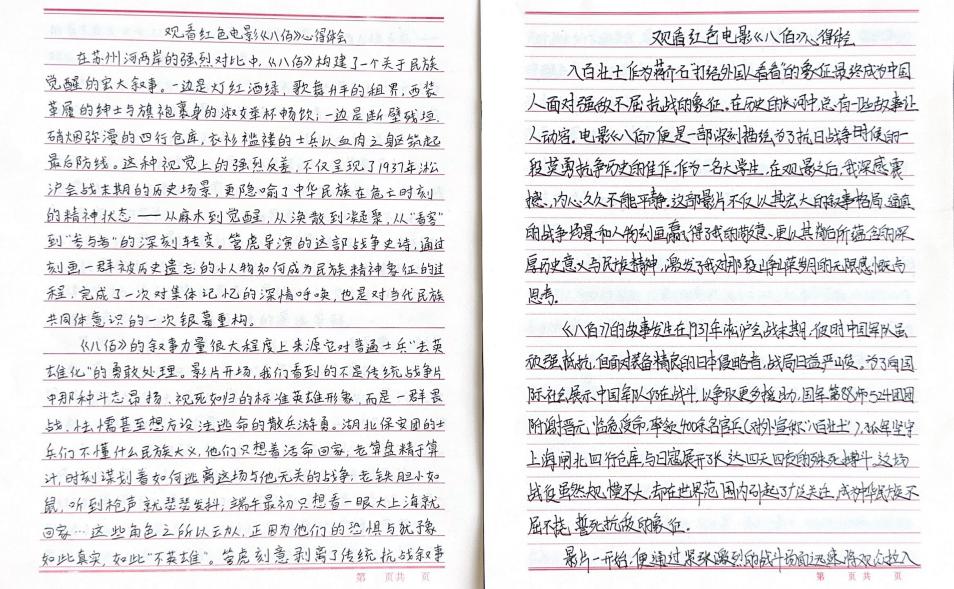 观看红色电影《八佰》心得体会
在苏州河两岸的强烈对比中，《八佰》构建了一个关于民族
觉醒的宏大叙事。一边是灯红酒绿，歌舞升平的租界，西装
革履的绅士与旗袍裹身的淑女举杯畅饮；一边是断壁残垣，
硝烟弥漫的四行仓库，衣衫褴褛的士兵以血肉之躯筑起
最后防线。这种视觉上的强烈反差，不仅呈现了1937年淞
沪会战末期的历史场景，更隐喻了中华民族在危亡时刻
的精神状态——从麻木到觉醒，从涣散到凝聚，从“看客”
到“参与者”的深刻转变。管虎导演的这部战争史诗，通过
刻画一群被历史遗忘的小人物如何成为民族精神象征的过
程，完成了一次对集体记忆的深情呼唤，也是对当代民族
共同体意识的一次银幕重构。
《八佰》的叙事力量很大程度上来源它对普通士兵“去英
雄化”的勇敢处理。影片开场，我们看到的不是传统战争片
中那种斗志昂扬、视死如归的标准英雄形象，而是一群畏
战，怯懦甚至想方设法逃命的散兵游勇。湖北保安团的士
兵们不懂什么民族大义，他们只想着活命回家，老算盘精于算
计，时刻谋划着如何逃离这场与他无关的战争，老铁胆小如
鼠，听到枪声就瑟瑟发抖；端午最初只想看一眼大上海就
回家…这些角色之所以动人，正因为他们的恐惧与犹豫
如此真实，如此“不英雄”。管虎刻意剥离了传统抗战叙事
第 页共 页
观看红色电影《八佰》心得体会
八百壮士作为蒋介石“打给外国人看看”的象征最终成为中国
人面对强敌不屈抗战的象征。在历史的长河中总有一些故事让
人动容。电影《八佰》便是一部深刻描绘了抗日战争时候的一
段英勇抗争历史的佳作，作为一名大学生，在观影之后，我深感震
撼，内心久久不能平静。这部影片不仅以其宏大的叙事格局、逼真
的战争场景和人物刻画赢得了我的敬意，更以其背后所蕴含的深
厚历史意义与民族精神，激发了我对那段峥嵘岁月的无限感慨与
思考。
《八佰》的故事发生在1937年淞沪会战末期，彼时中国军队虽
顽强抵抗，但面对装备精良的日本侵略者，战局日益严峻。为了向国
际社会展示中国军队仍在战斗，以争取更多援助，国军第88师524团团
附谢晋元，临危受命，率领400余名官兵（对外宣称“八百壮士”），坚守
上海闸北四行仓库与日寇展开了长达四天四夜的殊死搏斗。这场
战役虽然规模不大，却在世界范围内引起了广泛关注，成为中华民族不
屈不挠，誓死抗敌的象征。
影片一开始，便通过紧张激烈的战斗场面迅速将观众拉入
第 页共 页